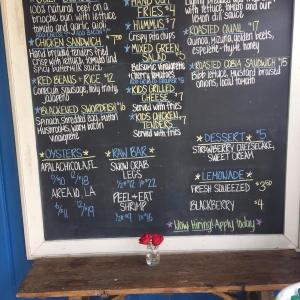 100% natural beef on a
brioche bun with lettuce
tomato and garlic aioli
*CHICKEN SANDWICH *7.00
hand breaded tenders fried
crisp with lettuce tomato and
spicy buttermilk sauce
*RED BEANS + RICE *12
Conecuh sausage, holy trinity,
jalapeño
*BLACKENED SWORDFISH *16
Spinach, shredded egg, button
mushrooms, warm bacon
vinaigrette
*OYSTERS*
APALACHICOLA FL
1/2 DZ
DZ 18
AREA 10, LA
1/2 12
DZ 19
HUMMUS *7
Crispy pita chips
MIXED GREEN
SALAD
Balsamic vinaigrette
cherry tomatoes
KIDS GRILLED
CHEESE *7
Served with fries
KIDS CHICKEN
TENDERS
Served with fries
*RAW BAR*
SNOW CRAB
LEGS
1/2# *12 1# *22
PEEL + EAT
SHRIMP
1/2# *9 1# *16
tomato bun with our
lemon dill sauce
*ROASTED QUAIL *7
Quinoa, mizuna, golden beets,
espelette-thyme honey
*ROASTED COBIA SANDWICH *15
Bibb lettuce, mustard braised
onions, local tomato
*DESSERT* *5
STRAWBERRY CHEESECAKE,
SWEET CREAM
*LEMONADE*
FRESH SQUEEZED *3.50
BLACKBERRY *4
*Now Hiring! Apply today*